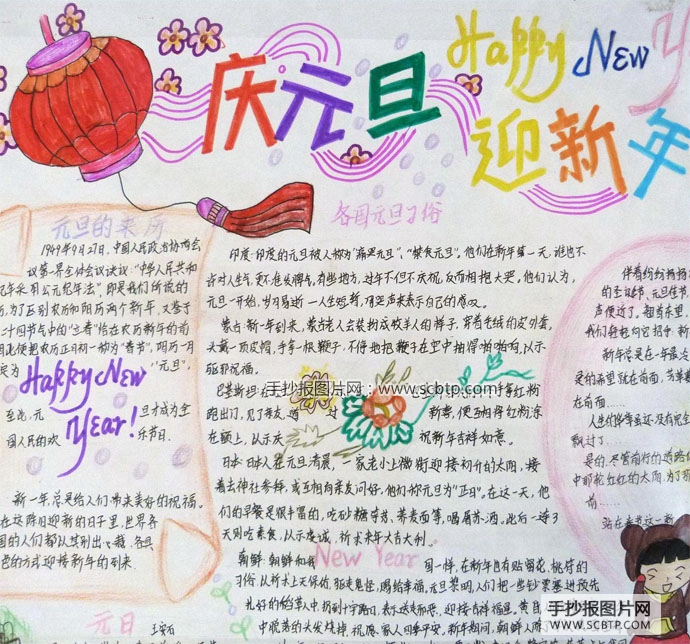 庆元旦
Happy New Y
迎新年
元旦的来历
1949年9月27日,中国人民政治协商会
议第一届全体会议决议:"中华人民共和
纪年采用公元纪年法",即是我们所说的
历,为了区别农历和阳历两个新年,又鉴于
二十四节气中的"立春"恰在农历新年的前
因此便把农历正月初一称为"春节",阳历一月
定为"元旦",
Happy New
Year!
至此,元旦才成为全
国人民的欢乐节日.
新一年,总是给人们带来美好的祝福。
在这辞旧迎新的日子里,世界各
国的人们都从其别出心裁、各具
的方式迎接新年的到来
元日
王安石
各国元旦习俗
印度:印度的元旦被人称为"痛哭元旦"、"禁食元旦"。他们在新年第一天,谁也不
许对人生气,更不准发脾气,有些地方,过年不但不庆祝,反而相抱大哭,他们认为,
元旦一开始,岁月易逝,人生短暂,用哭声来表示自己的感叹。
蒙古:新年一到来,蒙古老人会装扮成牧羊人的样子,穿着毛绒的皮外套,
头戴一顶皮帽,手拿一根鞭子,不停地把鞭子在空中抽得啪啪响,以示
驱邪祝福。
手抄报图片网:www.scbtp.com
巴基斯坦:在
红粉
跑出门,见了亲友,道过新喜,便互相将红粉涂
在额上,以示庆祝新年吉祥如意。
日本:日本人在元旦清晨,一家老小上街迎接初升的太阳,接
着去神社参拜,或互相向亲友问好,他们称元旦为"正日"。在这一天,他
们的早餐是很丰富的,吃砂糖竽艿、荞麦面等,喝屠苏酒。此后一连3
天则吃素食,以示虔诚,祈求来年大吉大利.
New Year
朝鲜:朝鲜和我国一样,在新年也有贴窗花、桃符的
习俗,从祈求上天保佑,驱走鬼怪,赐给幸福,元旦黎明,人们把一些钞票塞进预先
扎好的稻草人中,扔到十字路口,表示送走邪恶,迎接吉祥福星,黄昏
中脱落的头发烧掉,祝愿家人四季平安,新年期间,朝鲜人
伴着纷纷扬扬
的圣诞节、元旦佳节
声便近了。翘首东望,
我们轻轻向它招手,新
新年总是在一年最
是的希望就在前面,
在前面……
飘过了……
是的,尽管前行的道路
中那轮红红的太阳,为了
前……
站在
手抄报图片网
WWW.SCBTP.COM